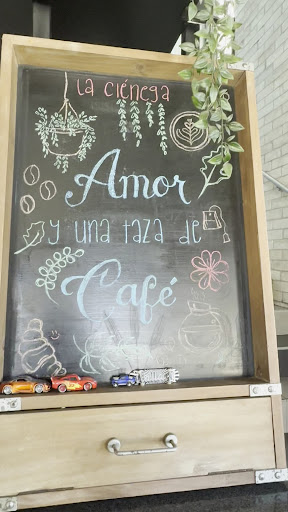 La ciénega
Amor
y una taza de
Café